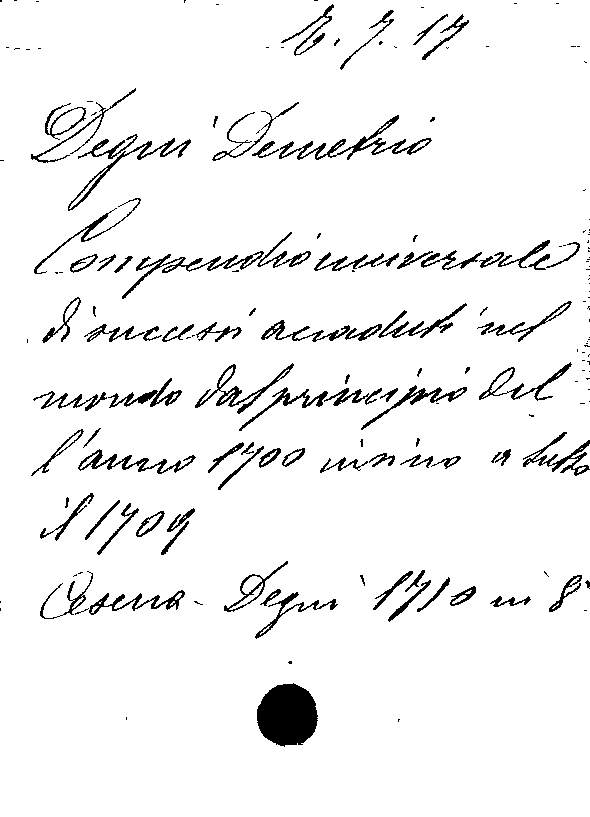 E. 7. 17
Degni Demetrio
Compendio universale
di successi accaduti nel
mondo dal principio del
l'anno 1700 insino a tutto
il 1709
Cesena - Degni 1710 in 8°